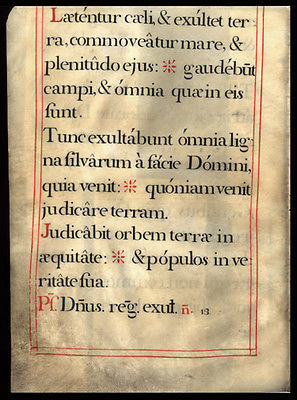 Læténtur cæli, & exúltet ter-
ra, commoveâtur mare, &
plenitûdo ejus: ⁜ gaudébũt
campi, & ómnia quæ in eis
sunt.
Tunc exultábunt ómnia lig-
na silvârum à fácie Dómini,
quia venit: ⁜ quóniam venit
judicâre terram.
Judicâbit orbem terræ in
æquitâte: ⁜ & pópulos in ve-
ritâte sua.
Ps. Dñus. reg̃. exul̃t. n̄. 13.